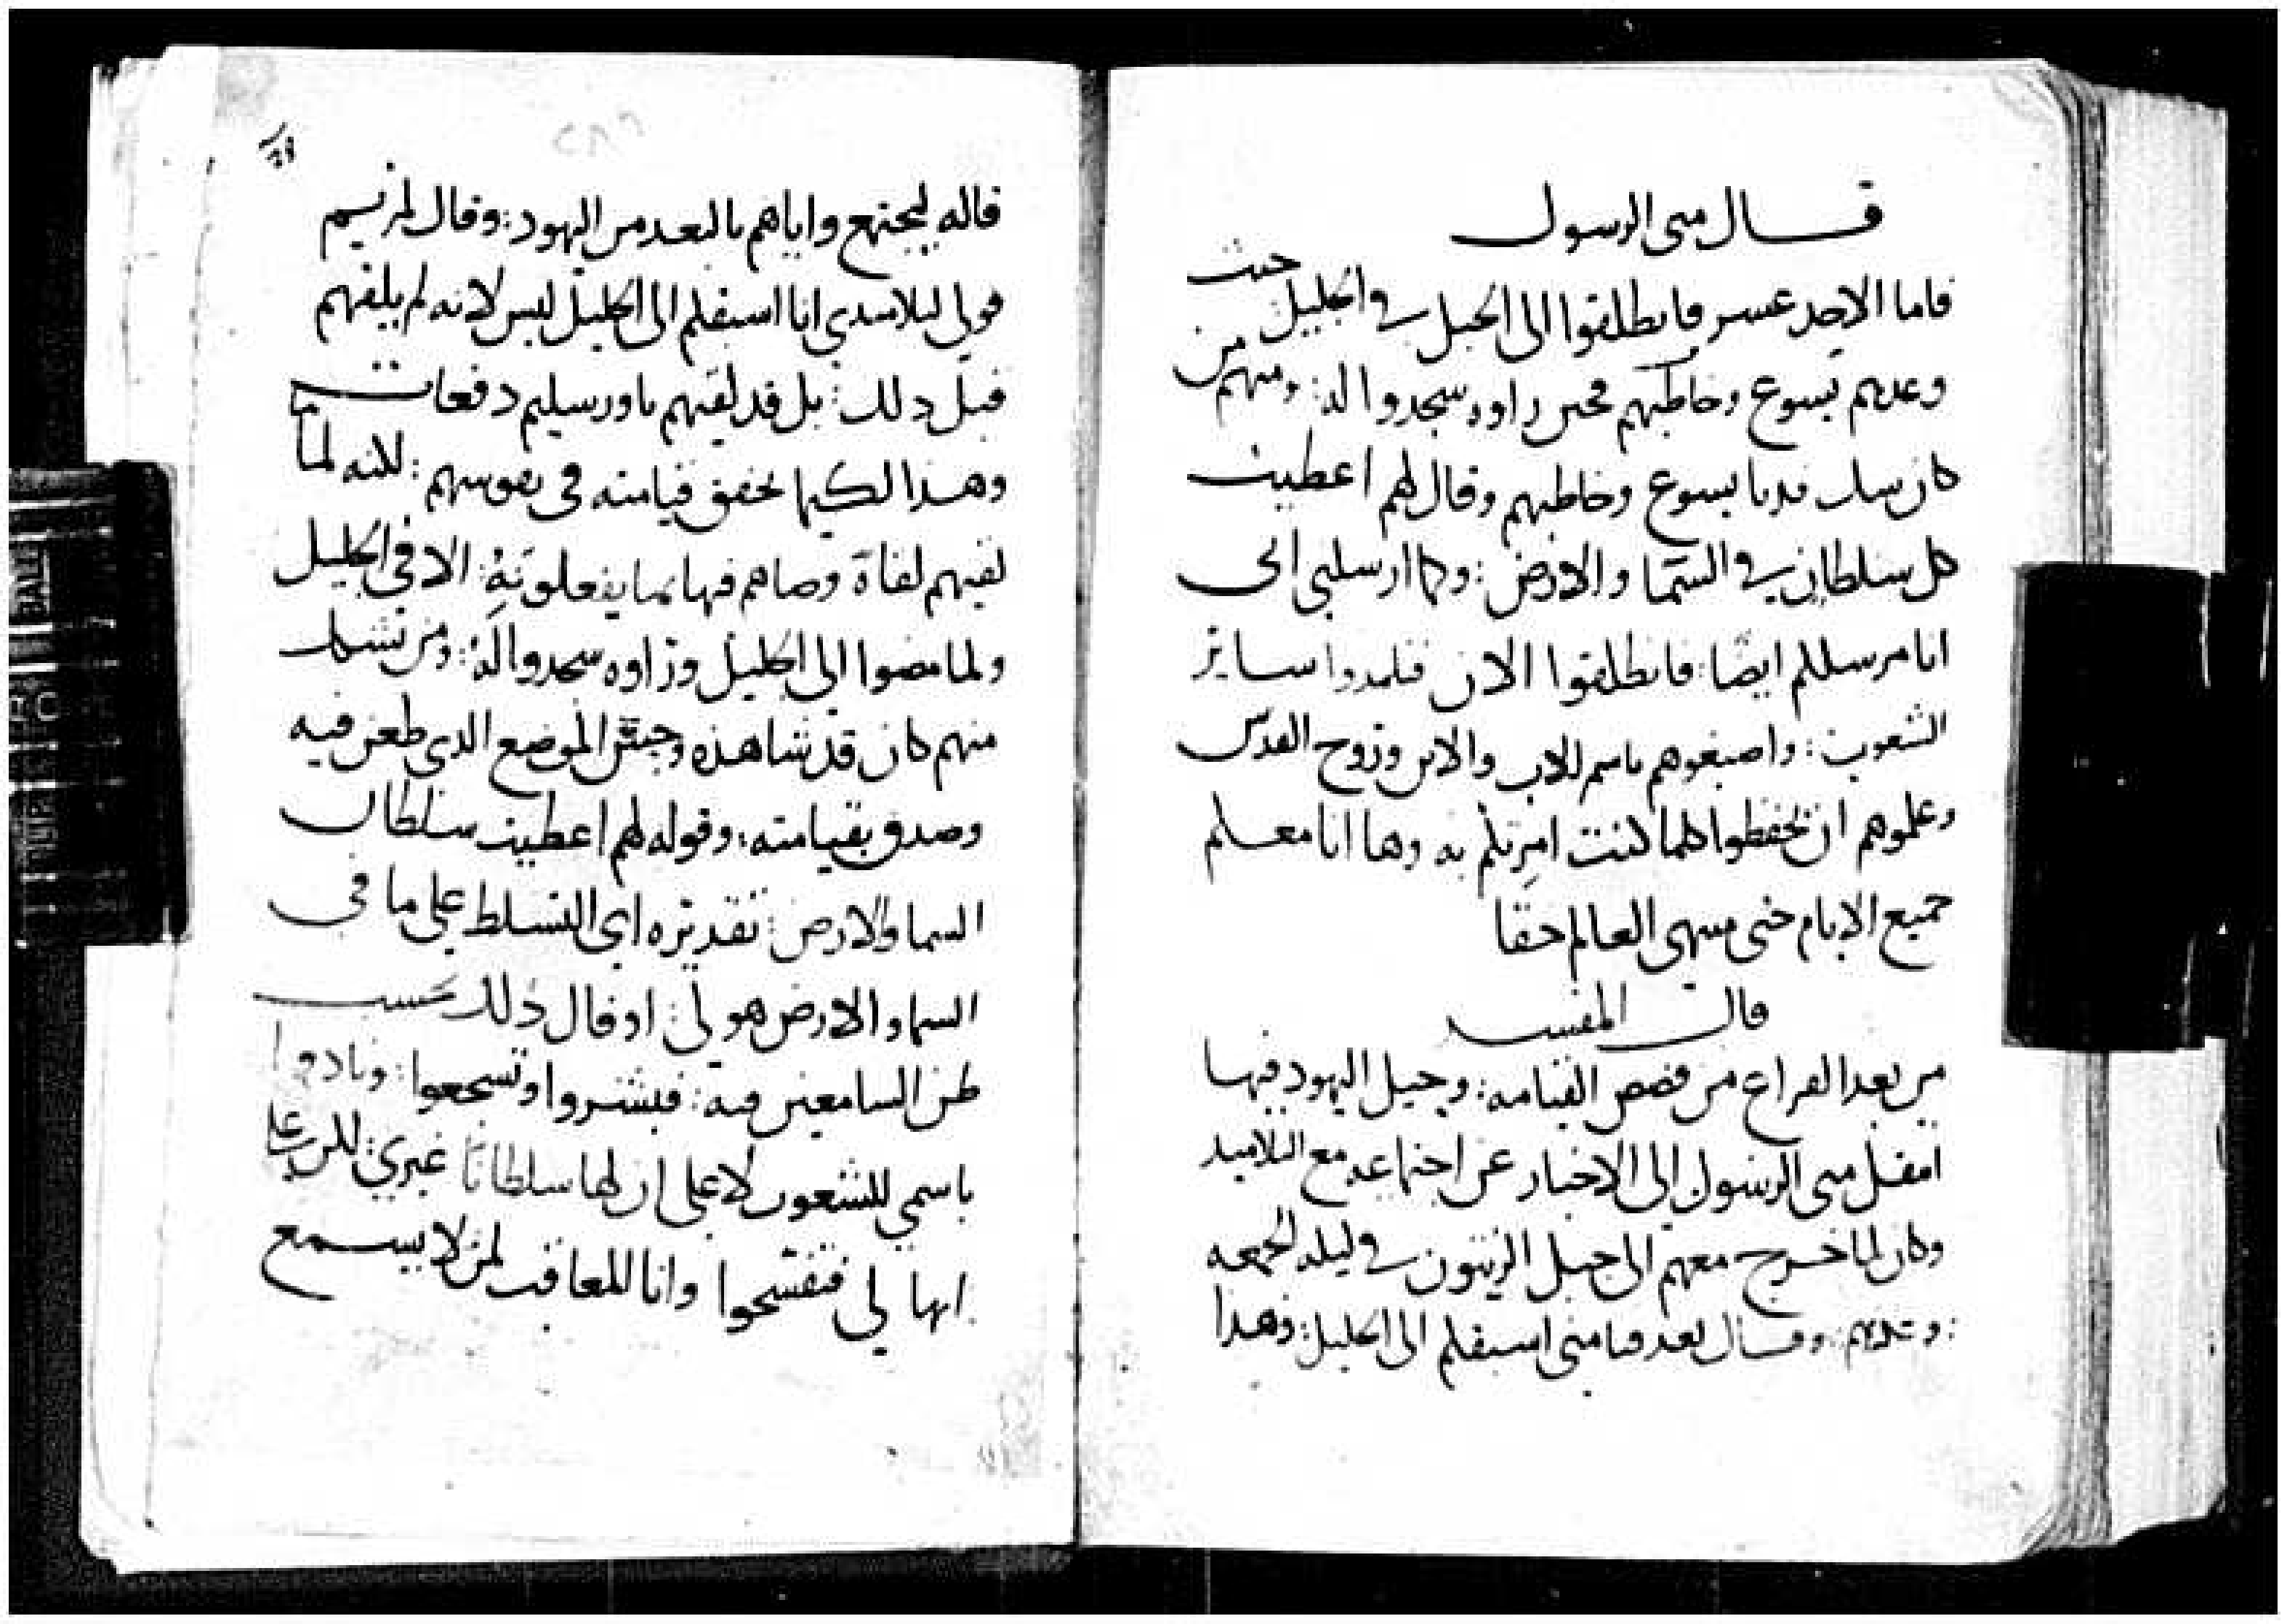 قال متى الرسول
فاما الاحد عشر فانطلقوا الى الجبل في الجليل حيث
وعدهم يسوع وخاطبهم فحين راوه سجدوا له: ومنهم من
كان شك فدنا يسوع وخاطبهم وقال لهم اعطيت
كل سلطان في السما والارض: وكما ارسلني ابي
انا مرسلكم ايضًا: فانطلقوا الان فتلمدوا ساير
الشعوب: واصبغوهم باسم الاب والابن وروح القدس
وعلموهم ان يحفظوا كلما كنت امرتكم به وها انا معكم
جميع الايام حتى منتهى العالم حقا
قال المفسر
من بعد الفراع من قصص القيامه: وحيل اليهود فيها
انتقل متى الرسول الى الاخبار عن اجتماعه مع التلاميد
وكان لما خرج معهم الى جبل الزيتون في ليله الجمعه
وعدهم: وقال بعد قيامتي اسبقكم الى الجليل: وهذا
قاله ليجتمع واياهم بالبعد من اليهود: وقال لمريم
قولي لتلاميدي انا اسبقكم الى الجليل ليس لانه لم يلقهم
قبل ذلك: بل قد لقيهم باورسليم دفعات
وهذا لكيما يحقق قيامته في نفوسهم: لكنه لما
لقيهم لقاة وصاهم فيها بما يفعلونه: الا في الجليل
ولما مضوا الى الجليل وراوه سجدوا له: ومن تشكك
منهم كان قد شاهده وجس الموضع الدي طعن فيه
وصدق بقيامته: وقوله لهم اعطيت سلطان
السما والارض: تقديره اي التسلط على ما في
السما والارض هو لي: او قال ذلك حسب
ظن السامعين فيه: فبشروا وتسجعوا: ونادوا
باسمي للشعوب لا على ان لها سلطانًا غيري: لكن على
انها لي فتفسحوا وانا المعاقب لمن لا يسمع